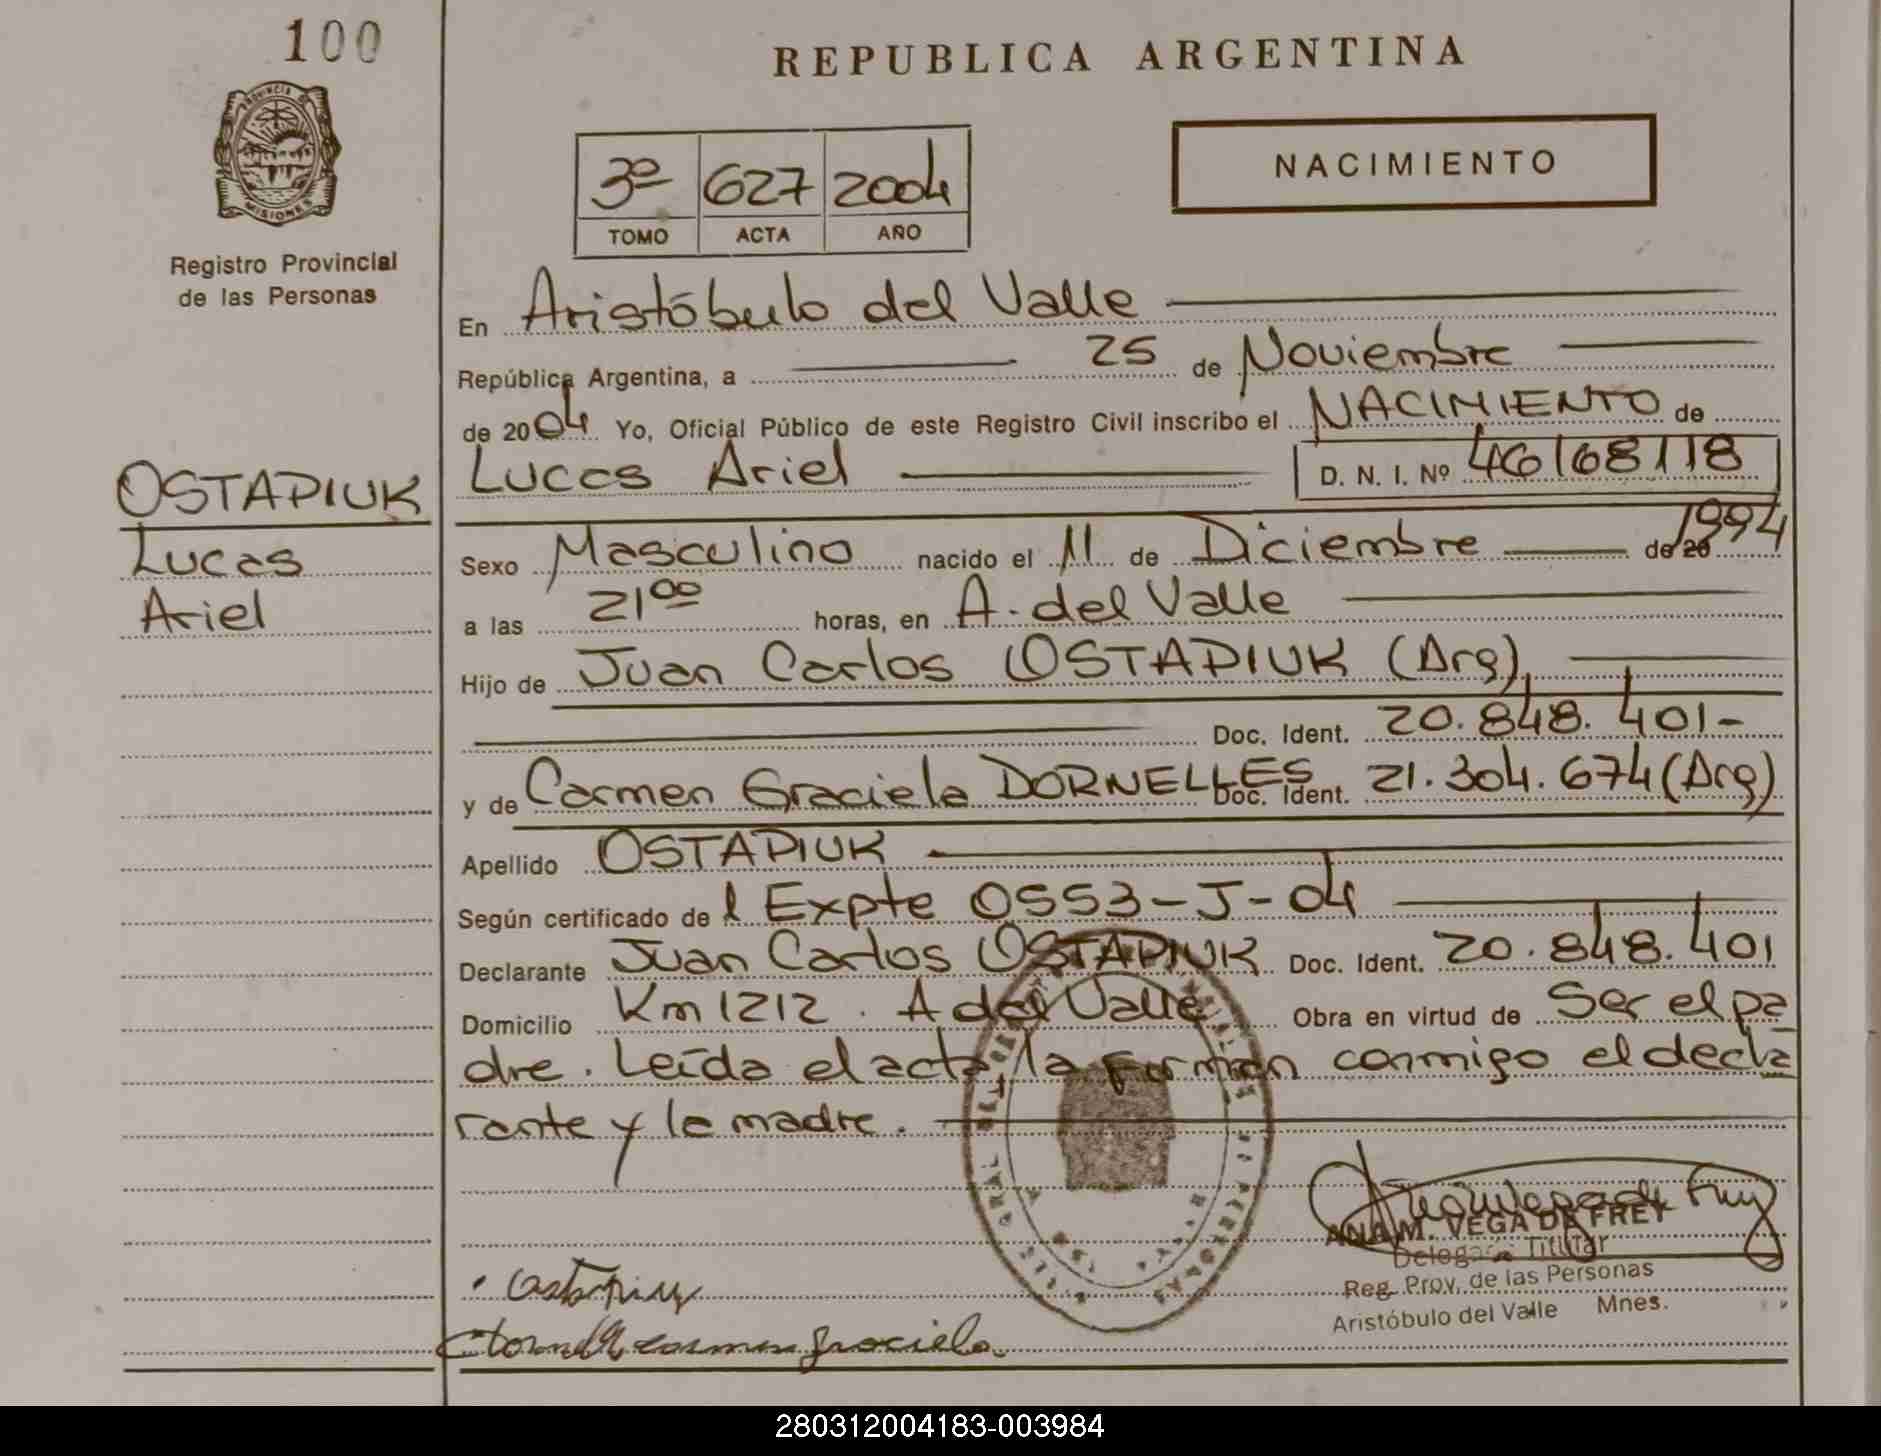 100
PROVINCIA DE
MISIONES
Registro Provincial
de las Personas
OSTAPIUK
Lucas
Ariel
REPUBLICA ARGENTINA
NACIMIENTO
3º 627 2004
TOMO ACTA AÑO
En Aristóbulo del Valle
República Argentina, a 25 de Noviembre
de 2004 Yo, Oficial Público de este Registro Civil inscribo el NACIMIENTO de
Lucas Ariel D. N. I. Nº 46168118
Sexo Masculino nacido el 11 de Diciembre de 20 1994
a las 21 00 horas, en A. del Valle
Hijo de Juan Carlos OSTAPIUK (Arg),
Doc. Ident. 20.848.401-
y de Carmen Graciela DORNELLES Doc. Ident. 21.304.674 (Arg)
Apellido OSTAPIUK
Según certificado de l Expte 0553-J-04
Declarante Juan Carlos OSTAPIUK Doc. Ident. 20.848.401
Domicilio Km 1212. A del Valle Obra en virtud de Ser el pa
dre. Leída el acta, la forman conmigo el decla
rante y la madre.
ANA M. VEGA DE FREY
Delegada Titular
Reg. Prov. de las Personas
Aristóbulo del Valle Mnes.
Carmen graciela
280312004183-003984